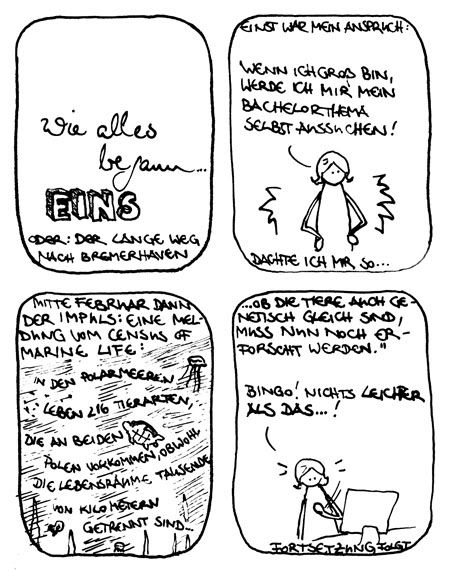 Wie alles
begann...
EINS
ODER: DER LANGE WEG
NACH BREMERHAVEN
EINST WAR MEIN ANSPRUCH:
WENN ICH GROß BIN,
WERDE ICH MIR MEIN
BACHELORTHEMA
SELBST AUSSUCHEN!
DACHTE ICH MIR SO...
MITTE FEBRUAR DANN
DER IMPULS: EINE MEL-
DUNG VOM CENSUS OF
MARINE LIFE:
IN DEN POLARMEEREN
LEBEN 216 TIERARTEN,
DIE AN BEIDEN
POLEN VORKOMMEN, OBWOHL
DIE LEBENSRÄUME TAUSENDE
VON KILOMETERN
GETRENNT SIND...
...OB DIE TIERE AUCH GE-
NETISCH GLEICH SIND,
MUSS NUN NOCH ER-
FORSCHT WERDEN."
BINGO! NICHTS LEICHTER
ALS DAS...!
FORTSETZUNG FOLGT